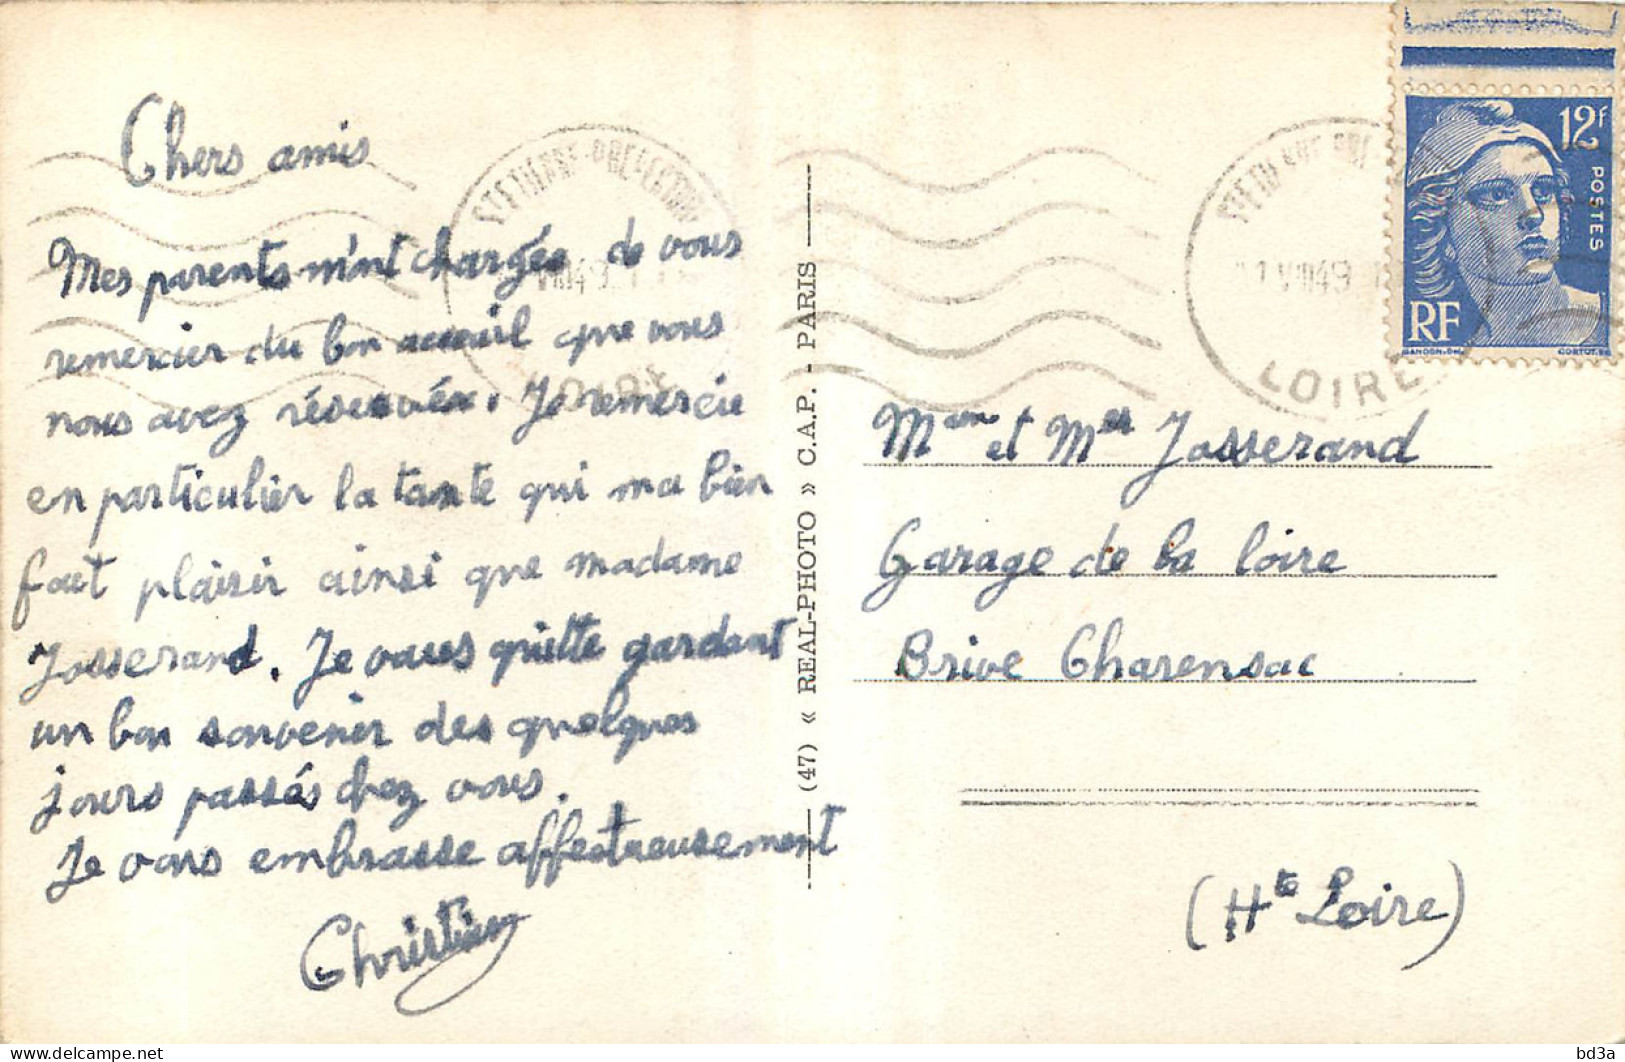 Chers amis
Mes parents m'nt chargés de vous
remercier du bon accueil que vous
nous avez réservés. Je remercie
en particulier la tante qui ma bien
fait plaisir ainsi que madame
Josserand. Je vous quitte gardant
un bon souvenir des quelques
jours passés chez vous.
Je vous embrasse affectueusement
Christian
(47) « REAL-PHOTO » C.A.P. - PARIS
LOIRE
12f
POSTES
RF
GANDON.DEL
CORTOT.SC
LOIRE
et Josserand
Garage de la loire
Brive Charensac
(Hte Loire)
bd3a
delcampe.net